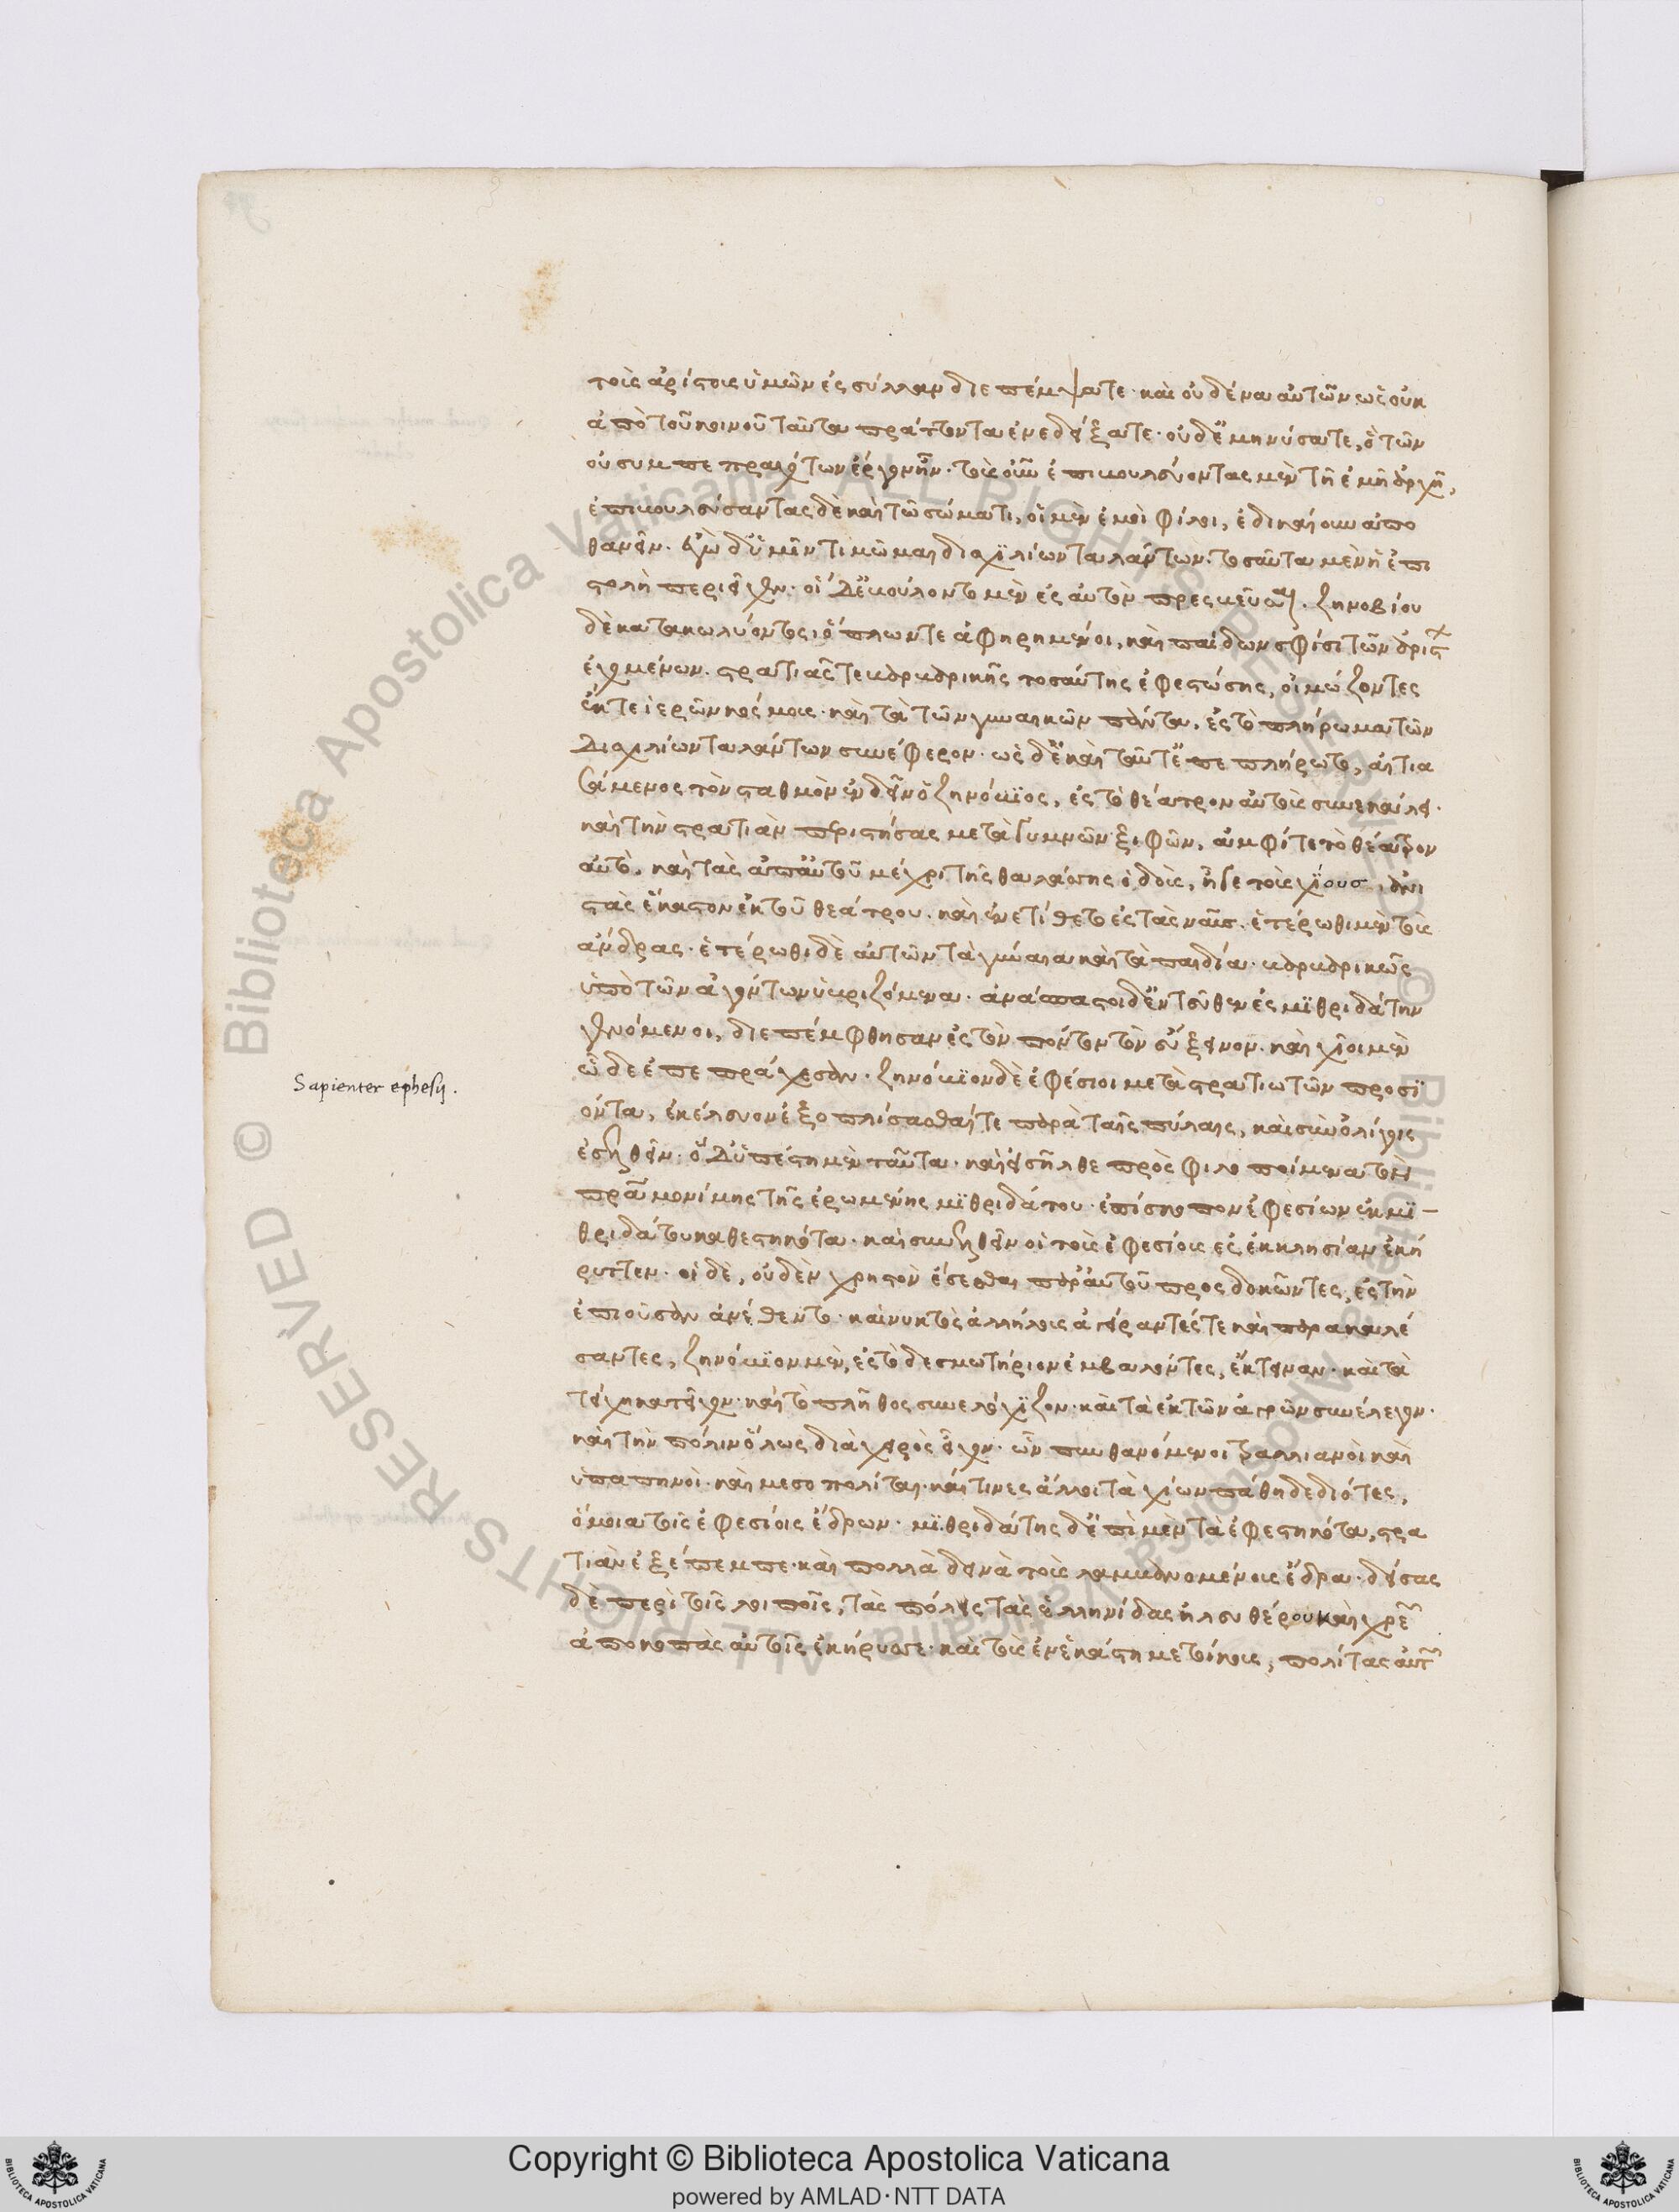 τοὺς ἀρίστους ὑμῶν ἐς σύλλαν διεπέμψατε· καὶ οὐδένα αὐτῶν ὡς οὐκ
ἀπὸ τοῦ κοινοῦ ταῦτα πράττοντα ἐνεδείξατε· οὐδ' ἐμηνύσατε, ὃ τῶν
οὐ συμπεπραχότων ἔργον ἦν· τοὺς οὖν ἐπιβουλεύοντας μὲν τῇ ἐμῇ ἀρχῇ,
ἐπιβουλεύσαντας δὲ καὶ τῷ σώματι, οἱ μὲν ἐμοὶ φίλοι, ἐδικαίουν ἀπο
θανεῖν· ἐγὼ δ' ὑμῖν τιμῶμαι δισχιλίων ταλάντων· τοσαῦτα μὲν ἡ ἐπι
στολὴ περιεῖχεν· οἱ δ' ἐβούλοντο μὲν ἐς αὐτὸν πρεσβεῦσαι· ζηνοβίου
δὲ κατακωλύοντος, ὅπλων τε ἀφῃρημένοι, καὶ παίδων σφίσι τῶν ἀρίστ
ἐχομένων· στρατιᾶς τε βαρβαρικῆς τοσαύτης ἐφεστώσης, οἰμώζοντες
ἔκ τε ἱερῶν κόσμους· καὶ τὰ τῶν γυναικῶν πάντα, ἐς τὸ πλήρωμα τῶν
δισχιλίων ταλάντων συνέφερον· ὡς δὲ καὶ ταῦτ' ἐπεπλήρωτο, αἰτια
σάμενος τὸν σταθμὸν ἐνδεῖν ὁ ζηνόβιος, ἐς τὸ θέατρον αὐτοὺς συνεκάλει·
καὶ τὴν στρατιὰν περιστήσας μετὰ γυμνῶν ξιφῶν, ἀμφί τε τὸ θέατρον
αὐτὸ, καὶ τὰς ἀπ' αὐτοῦ μέχρι τῆς θαλάττης ὁδοὺς, ἦγε τοὺς χίους, ἀνι
στὰς ἕκαστον ἐκ τοῦ θεάτρου· καὶ ἐνετίθετο ἐς τὰς ναῦς· ἑτέρωθι μὲν τοὺς
ἄνδρας· ἑτέρωθι δὲ αὐτῶν τὰ γύναια καὶ τὰ παιδία· βαρβαρικῶς
ὑπὸ τῶν ἀγόντων ὑβριζόμενα· ἀνάσπαστοι δ' ἐντεῦθεν ἐς μιθριδάτην
γενόμενοι, διεπέμφθησαν ἐς τὸν πόντον τὸν εὔξεινον· καὶ χῖοι μὲν
ὧδε ἐπεπράγεσαν· ζηνόβιον δὲ ἐφέσιοι μετὰ στρατιωτῶν προσϊ
όντα, ἐκέλευον ἐξοπλίσασθαί τε παρὰ ταῖς πύλαις, καὶ σὺν ὀλίγοις
ἐσελθεῖν· ὁ δ' ὑπέστη μὲν ταῦτα· καὶ εἰσῆλθε πρὸς φιλοποίμενα τὸν
πρᾶ μονίμης τῆς ἐρωμένης μιθριδάτου· ἐπίσκοπον ἐφεσίων ἐκ μι-
θριδάτου καθεστηκότα· καὶ συνελθεῖν οἱ τοὺς ἐφεσίους ἐς ἐκκλησίαν ἐκή
ρυττεν· οἱ δὲ, οὐδὲν χρηστὸν ἔσεσθαι παρ' αὐτοῦ προσδοκῶντες, ἐς τὴν
ἐπιοῦσαν ἀνέθεντο· καὶ νυκτὸς ἀλλήλους ἀγείραντές τε καὶ παρακαλέ
σαντες, ζηνόβιον μὲν, ἐς τὸ δεσμωτήριον ἐμβαλόντες, ἔκτειναν· καὶ τὰ
τείχη κατεῖχον· καὶ τὸ πλῆθος συνελόχιζον· καὶ τὰ ἐκ τῶν ἀγρῶν συνέλεγον·
καὶ τὴν πόλιν ὅλως διὰ χειρὸς εἶχον· ὧν πυνθανόμενοι τραλλιανοὶ καὶ
ὑπαιπηνοὶ· καὶ μεσοπολῖται· καί τινες ἄλλοι τὰ χίων πάθη δεδιότες,
ὅμοια τοῖς ἐφεσίοις ἔδρων· μιθριδάτης δ' ἐπὶ μὲν τὰ ἀφεστηκότα, στρα
τιὰν ἐξέπεμπε· καὶ πολλὰ δεινὰ τοὺς λαμβανομένους ἔδρα· δείσας
δὲ περὶ τοῖς λοιποῖς, τὰς πόλεις τὰς ἑλληνίδας ἠλευθέρου καὶ χρε
ἀποκοπὰς αὐτοῖς ἐκήρυσσε· καὶ τοὺς ἐν ἑκάστῃ μετοίκους, πολίτας αὐτ
Sapienter ephesij.